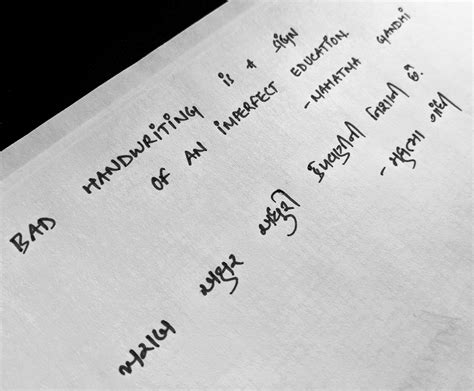 BAD HANDWRITING IS A SIGN
OF AN IMPERFECT EDUCATION.
- MAHATMA GANDHI
ખરાબ અક્ષર અધુરી કેળવણીની નિશાની છે.
- મહાત્મા ગાંધી